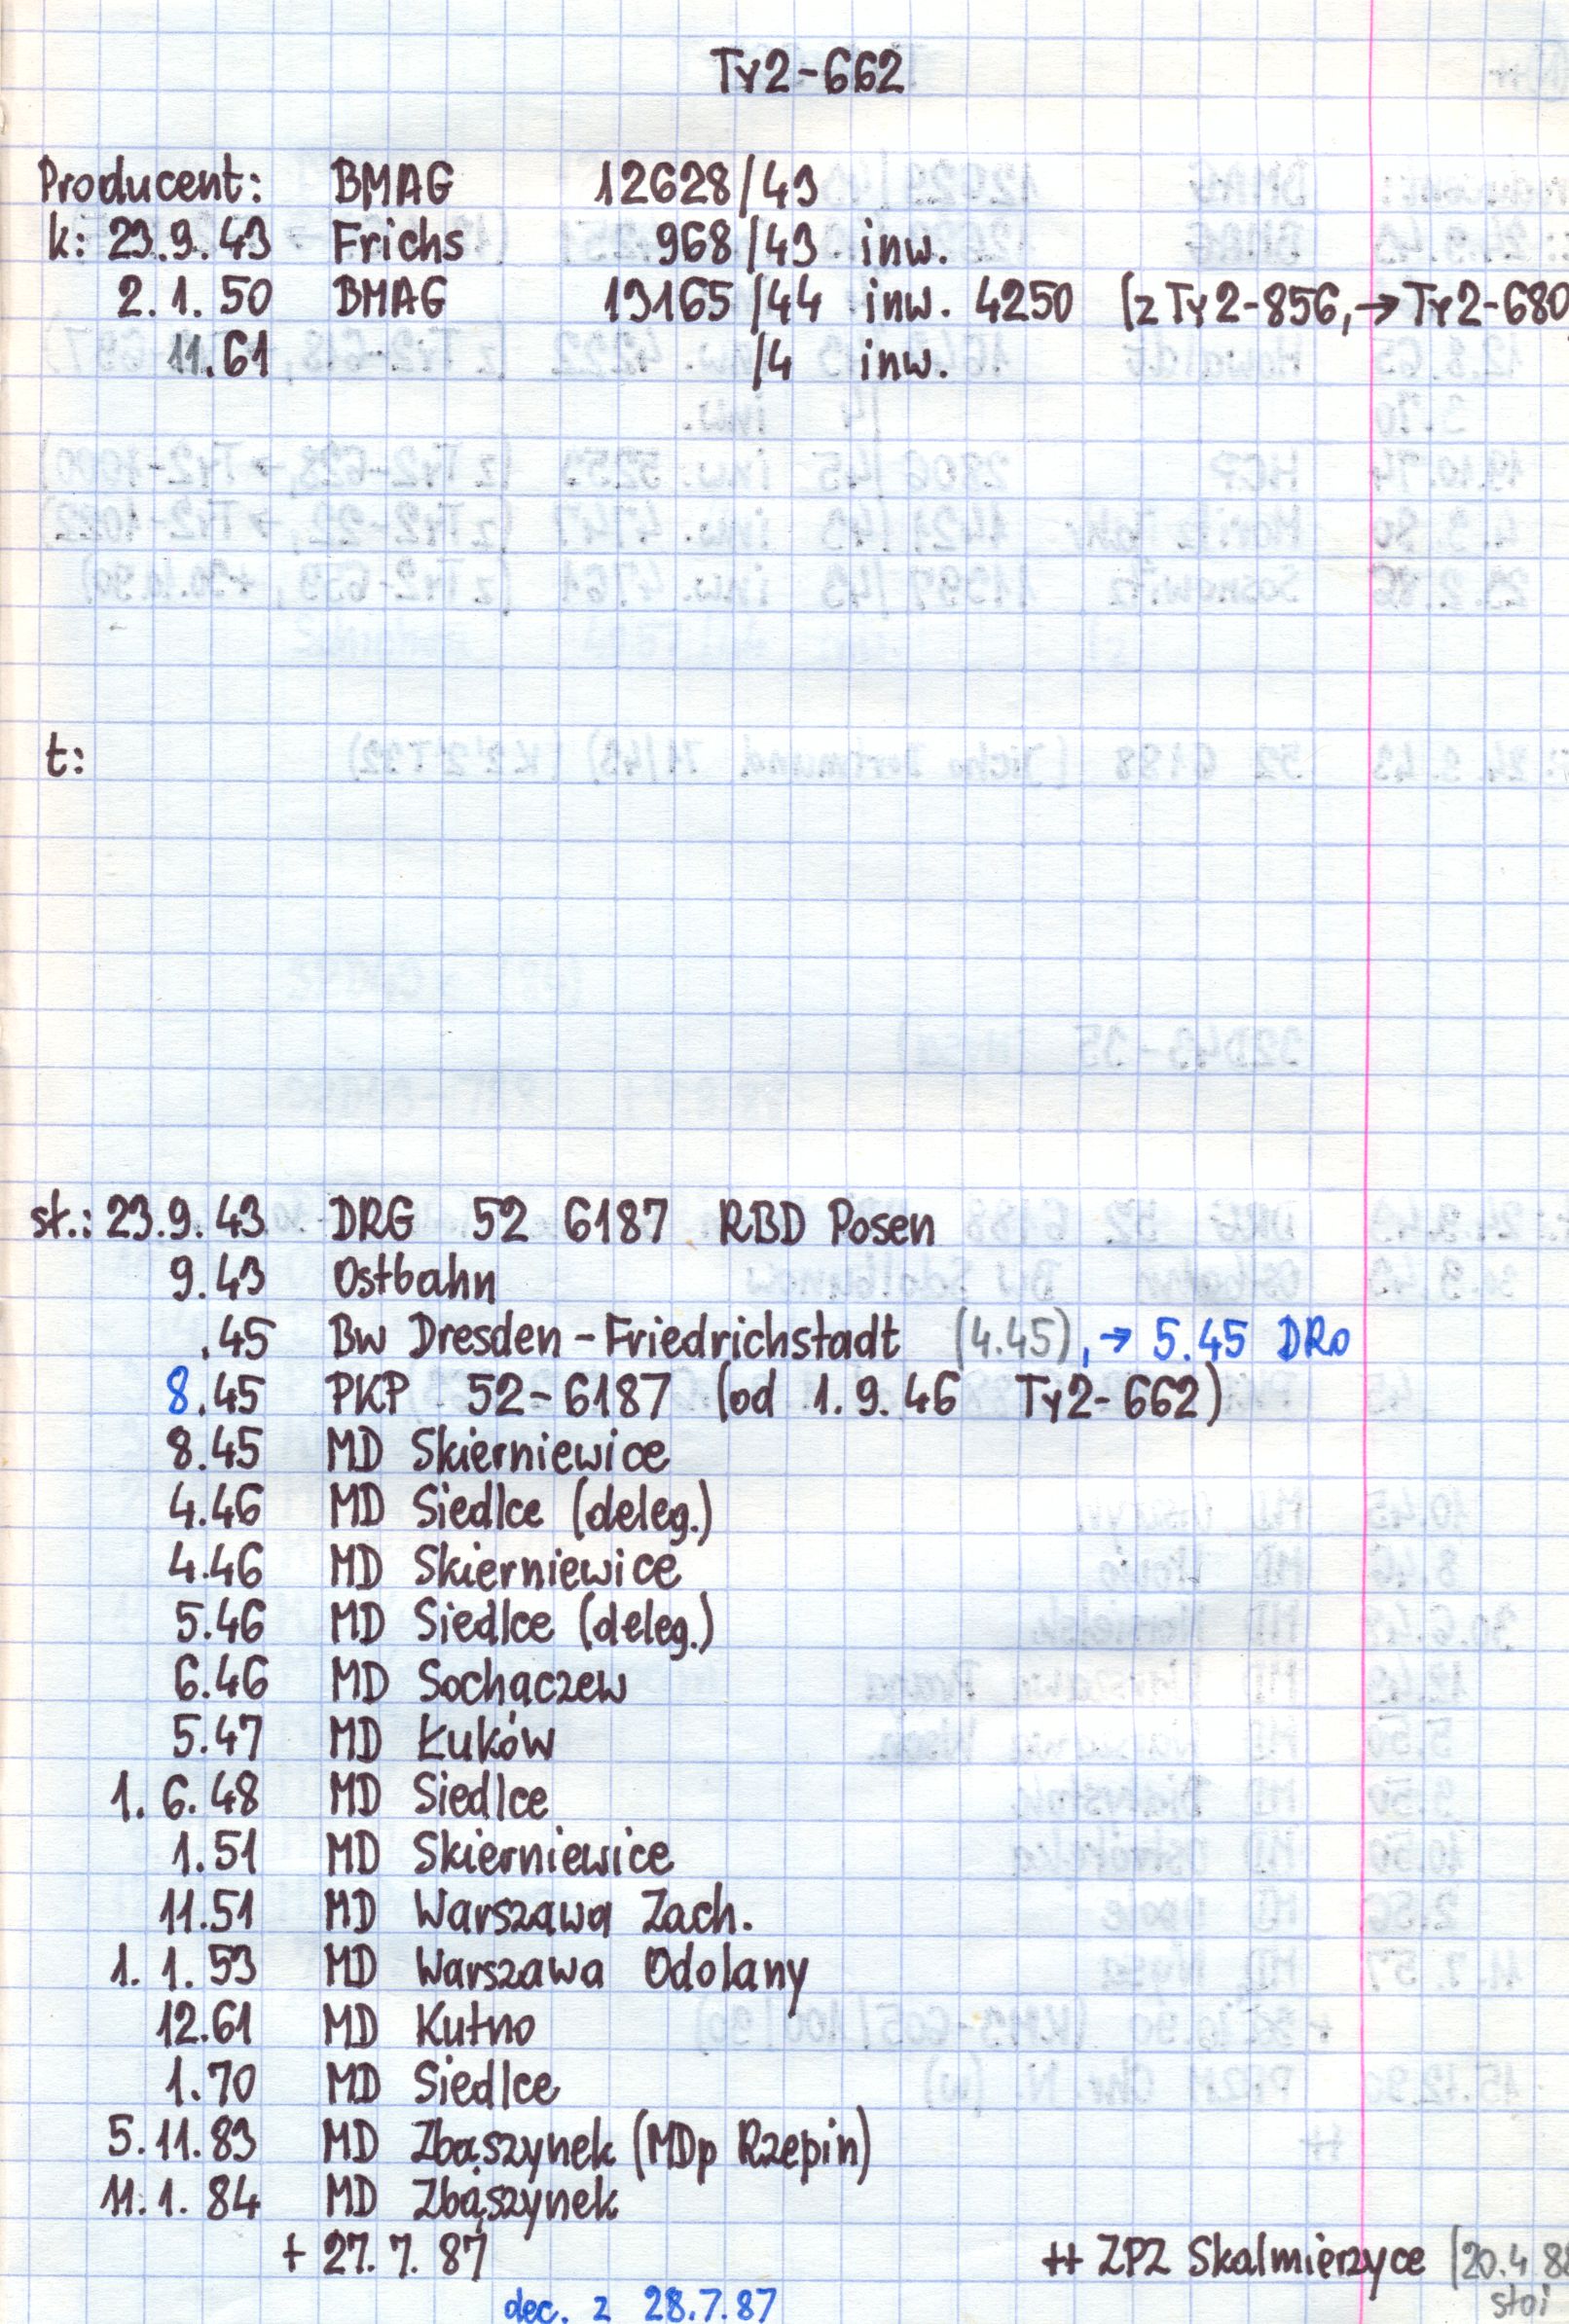 Ty2-662
Producent: BMAG 12628/43
k: 23.9.43 Frichs 968/43 inw.
2.1.50 BMAG 13165/44 inw. 4250 (z Ty2-856, → Ty2-680
11.61 /4 inw.
t:
st.: 23.9.43 DRG 52 6187 RBD Posen
9.43 Ostbahn
.45 Bw Dresden-Friedrichstadt (4.45), → 5.45 DRo
8.45 PKP 52-6187 (od 1.9.46 Ty2-662)
8.45 MD Skierniewice
4.46 MD Siedlce (deleg.)
4.46 MD Skierniewice
5.46 MD Siedlce (deleg.)
6.46 MD Sochaczew
5.47 MD Łuków
1.6.48 MD Siedlce
1.51 MD Skierniewice
11.51 MD Warszawa Zach.
1.1.53 MD Warszawa Odolany
12.61 MD Kutno
1.70 MD Siedlce
5.11.83 MD Zbąszynek (MDp Rzepin)
11.1.84 MD Zbąszynek
+ 27.7.87 ++ ZPZ Skalmierzyce (20.4.88
stoi
dec. z 28.7.87